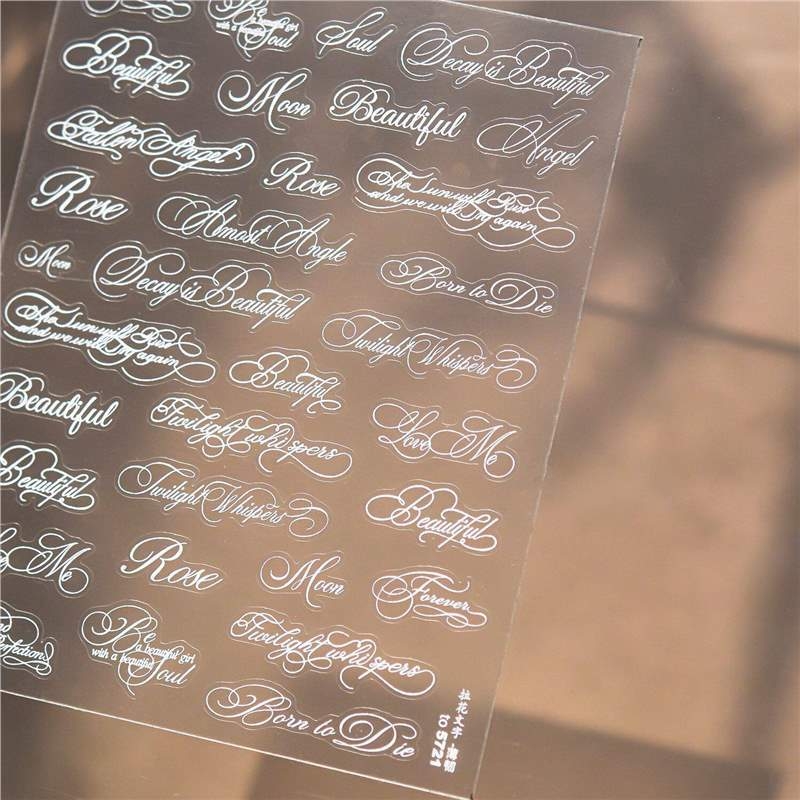 Be
a beautiful girl
with a beautiful
Soul
Soul
Decay is Beautiful
Beautiful
Moon
Beautiful
Angel
Fallen Angel
Rose
The Sun will Rise
and we will try again
Rose
Almost Angle
Born to Die
Moon
Decay is Beautiful
Twilight Whispers
The Sun will Rise
and we will try again
Beautiful
Love Me
Beautiful
Twilight whispers
Beautiful
Beautiful
Twilight Whispers
Me
Rose
Moon
Forever
Perfections
Be
a beautiful girl
with a beautiful
Soul
Twilight whispers
Born to Die
拉花文字
to 5721